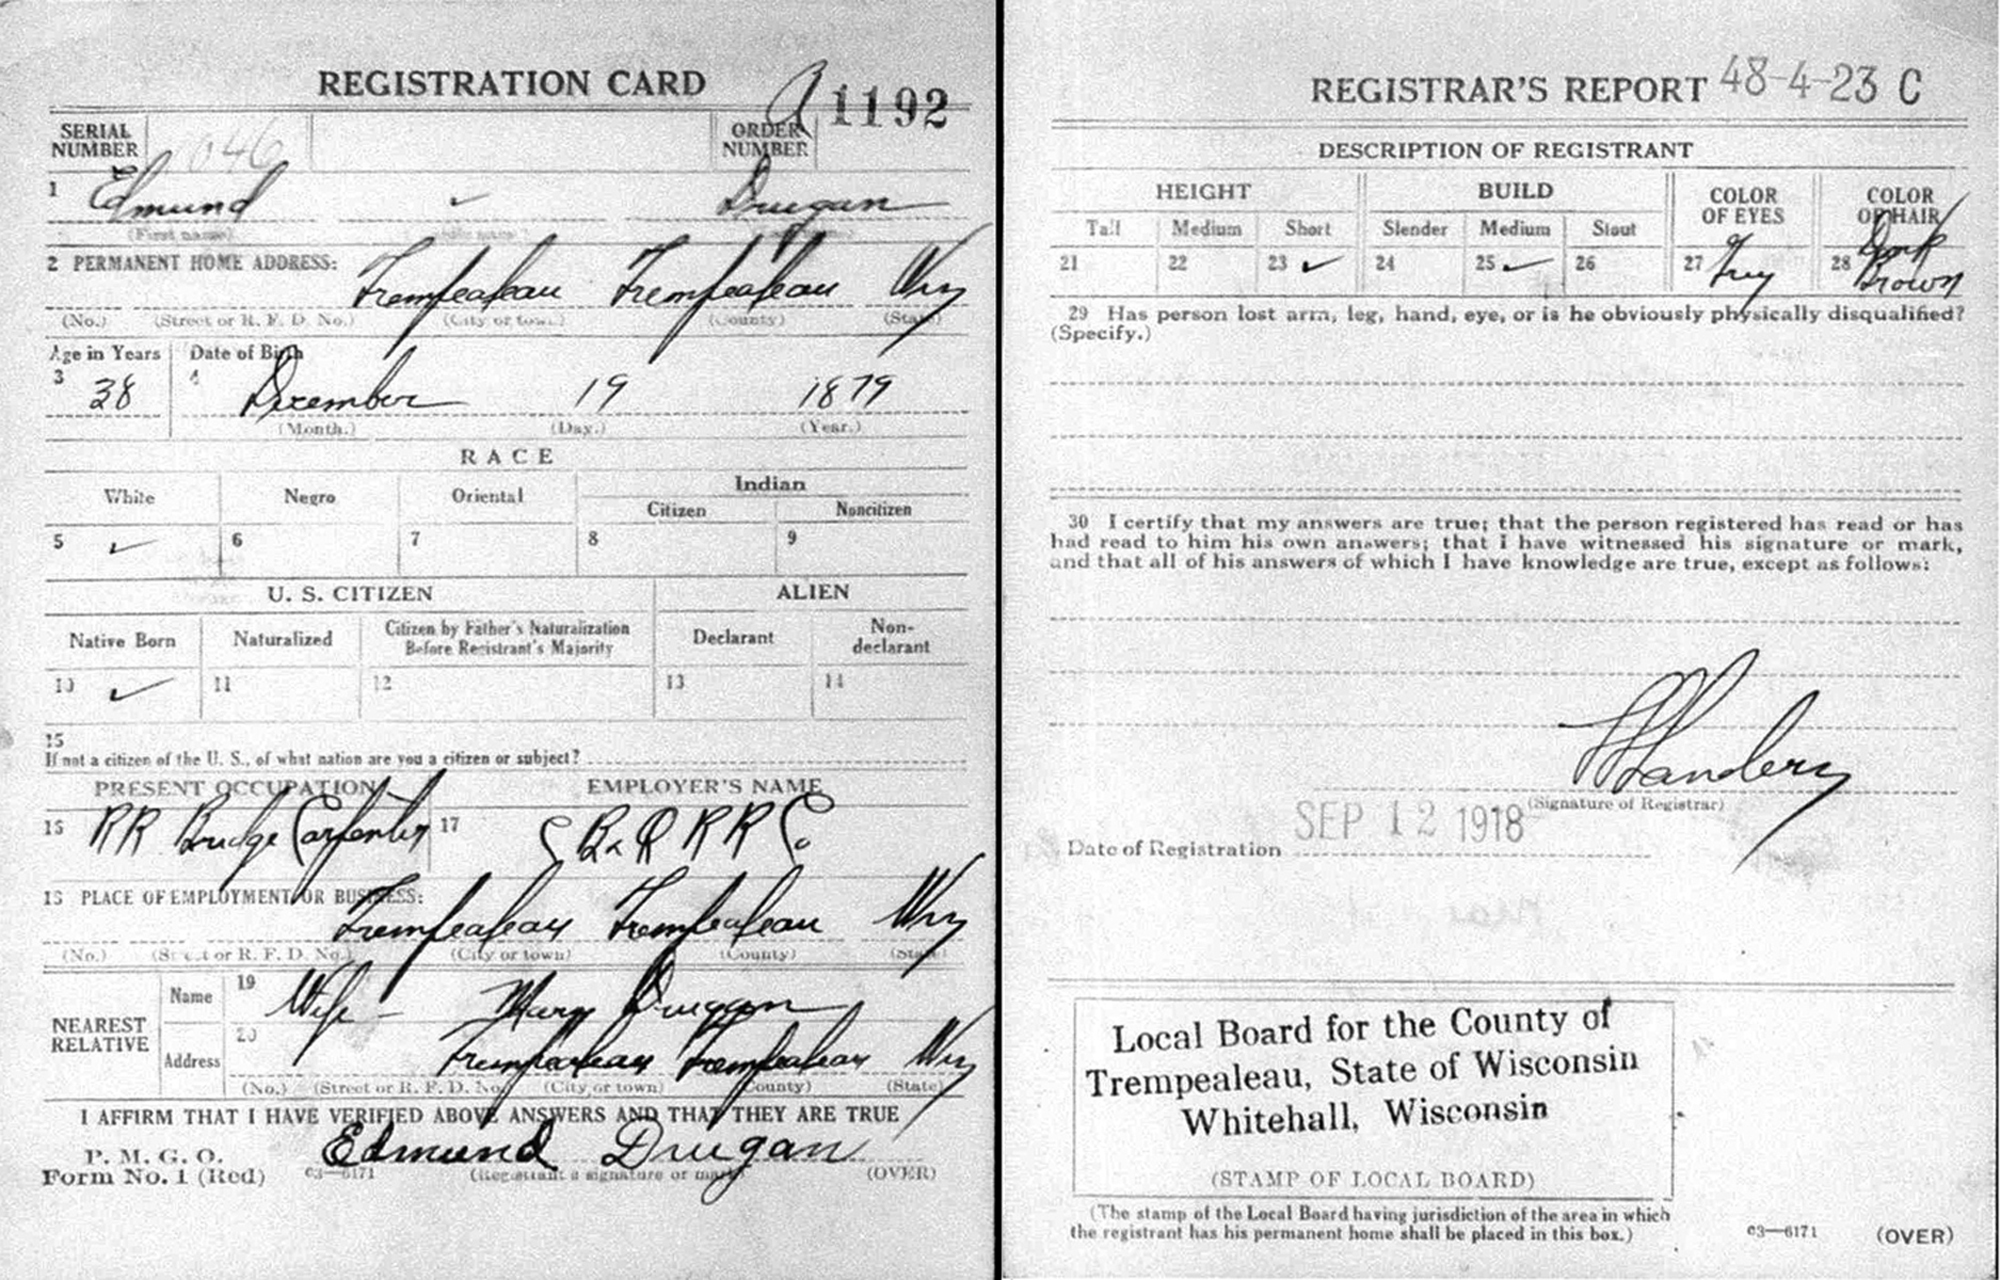 REGISTRATION CARD A 1192
SERIAL NUMBER 046 ORDER NUMBER
1 Edmund Drugan
(First name)
2 PERMANENT HOME ADDRESS:
Trempealeau Trempealeau Wis
(No.) (Street or R. F. D. No.) (City or town) (County) (State)
Age in Years Date of Birth
3 38 4 December 19 1879
(Month.) (Day.) (Year.)
RACE
White Negro Oriental Indian
Citizen Noncitizen
5 ✓ 6 7 8 9
U. S. CITIZEN ALIEN
Native Born Naturalized Citizen by Father's Naturalization Before Registrant's Majority Declarant Non-declarant
10 ✓ 11 12 13 14
15
If not a citizen of the U. S., of what nation are you a citizen or subject?
PRESENT OCCUPATION EMPLOYER'S NAME
16 RR Bridge Carpenter 17 C B & Q R R Co
18 PLACE OF EMPLOYMENT OR BUSINESS:
Trempealeau Trempealeau Wis
(No.) (Street or R. F. D. No.) (City or town) (County) (State)
NEAREST RELATIVE
Name 19 Wife - Mary Drugan
Address 20 Trempealeau Trempealeau Wis
(No.) (Street or R. F. D. No.) (City or town) (County) (State)
I AFFIRM THAT I HAVE VERIFIED ABOVE ANSWERS AND THAT THEY ARE TRUE
P. M. G. O.
Form No. 1 (Red) 03—6171 Edmund Drugan
(Registrant's signature or mark) (OVER)
REGISTRAR'S REPORT 48-4-23 C
DESCRIPTION OF REGISTRANT
HEIGHT BUILD COLOR OF EYES COLOR OF HAIR
Tall Medium Short Slender Medium Stout
21 22 23 ✓ 24 25 ✓ 26 27 Grey 28 Dark Brown
29 Has person lost arm, leg, hand, eye, or is he obviously physically disqualified?
(Specify.)
30 I certify that my answers are true; that the person registered has read or has
had read to him his own answers; that I have witnessed his signature or mark,
and that all of his answers of which I have knowledge are true, except as follows:
(Signature of Registrar)
Date of Registration SEP 12 1918
Local Board for the County of
Trempealeau, State of Wisconsin
Whitehall, Wisconsin
(STAMP OF LOCAL BOARD)
(The stamp of the Local Board having jurisdiction of the area in which
the registrant has his permanent home shall be placed in this box.)
03—6171 (OVER)